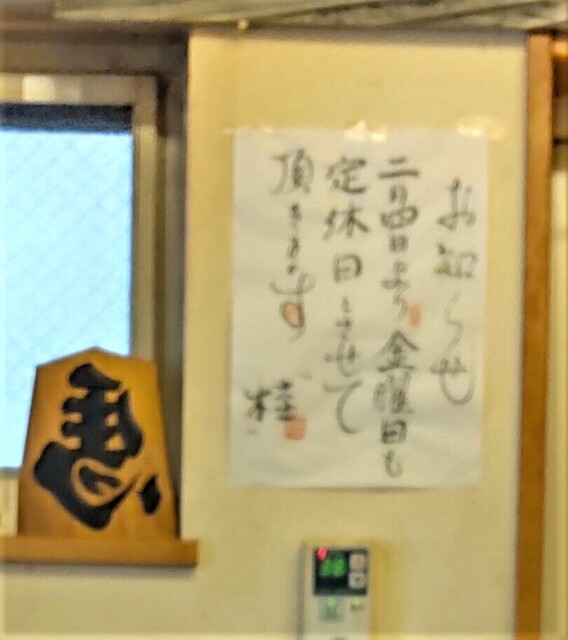 お知らせ
二月四日より金曜日も
定休日とさせて
頂きます
桂